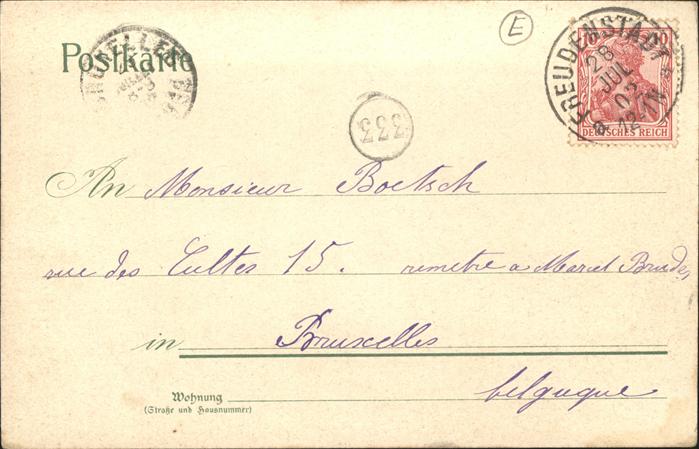 E
Postkarte
BRUXELLES
10 10
FREUDENSTADT
28
JUL
02
12-1N
DEUTSCHES REICH
333
An Monsieur Boetsch
rue des Cultes 15. remetre a Marcel
in Bruxelles
Wohnung
belguque
(Straße und Hausnummer)